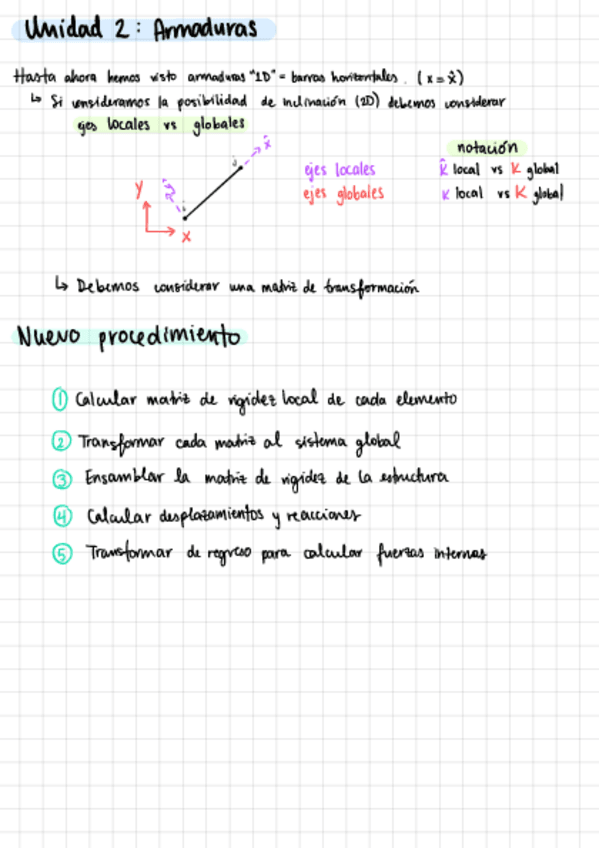 Unidad 2: Armaduras
Hasta ahora hemos visto armaduras "1D" = barras horizontales. (x = x̂)
↳ Si consideramos la posibilidad de inclinación (2D) debemos considerar
ejes locales vs globales
notación
x̂
ŷ
j
i
y
x
ejes locales
ejes globales
k̂ local vs K global
K local vs K global
↳ Debemos considerar una matriz de transformación
Nuevo procedimiento
① Calcular matriz de rigidez local de cada elemento
② Transformar cada matriz al sistema global
③ Ensamblar la matriz de rigidez de la estructura
④ Calcular desplazamientos y reacciones
⑤ Transformar de regreso para calcular fuerzas internas